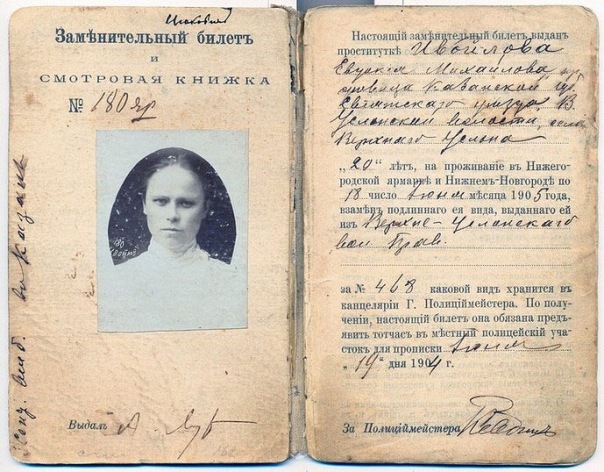 Замѣнительный билетъ
и
СМОТРОВАЯ КНИЖКА
№ 180 яр
Выдалъ
Настоящій замѣнительный билетъ выданъ
проституткѣ
Михайлова
Казанской губ.
Свіяжскаго уѣзда В.
Услонской волости, села
Верхняго Услона
„20“ лѣтъ, на проживаніе въ Нижего-
родской ярмаркѣ и Нижнемъ-Новгородѣ по
18 число Іюня мѣсяца 1905 года,
взамѣнъ подлиннаго ея вида, выданнаго ей
изъ Верхне-Услонскаго
вол. Прав.
за № 468 каковой видъ хранится въ
канцеляріи Г. Полиціймейстера. По полу-
ченіи, настоящій билетъ она обязана предъ-
явить тотчасъ въ мѣстный полицейскій уча-
стокъ для прописки
„19“ дня 1904 г.
За Полиціймейстера